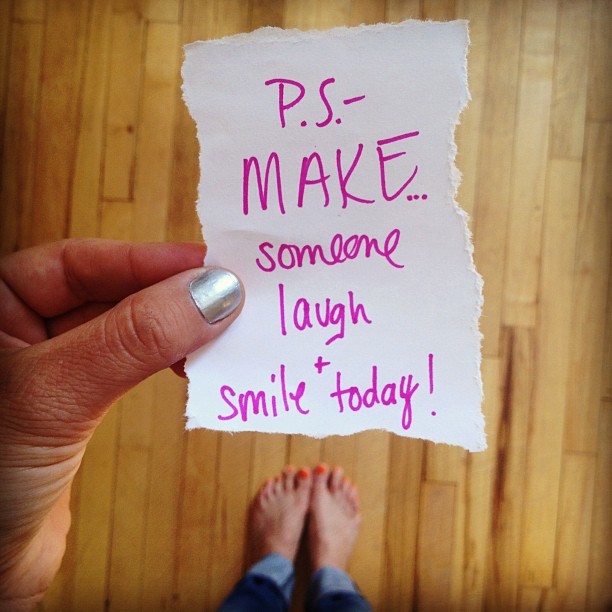 P.S.-
MAKE...
someone
laugh
+
smile today!